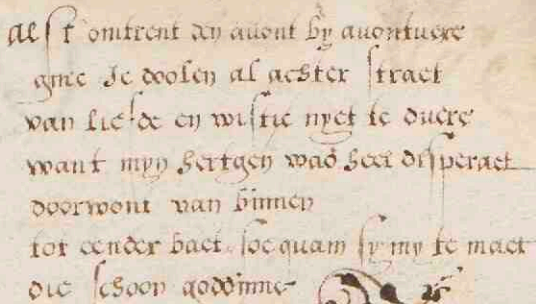 Alst omtrent den auont by auontuere
ginc Je doolen al achter straet
van liefde en wistic nyet te duere
want myn hertgen was heel disperaet
doorwont van binnen
tot eender baet soe quam sy my te maet
die schoon goddinne